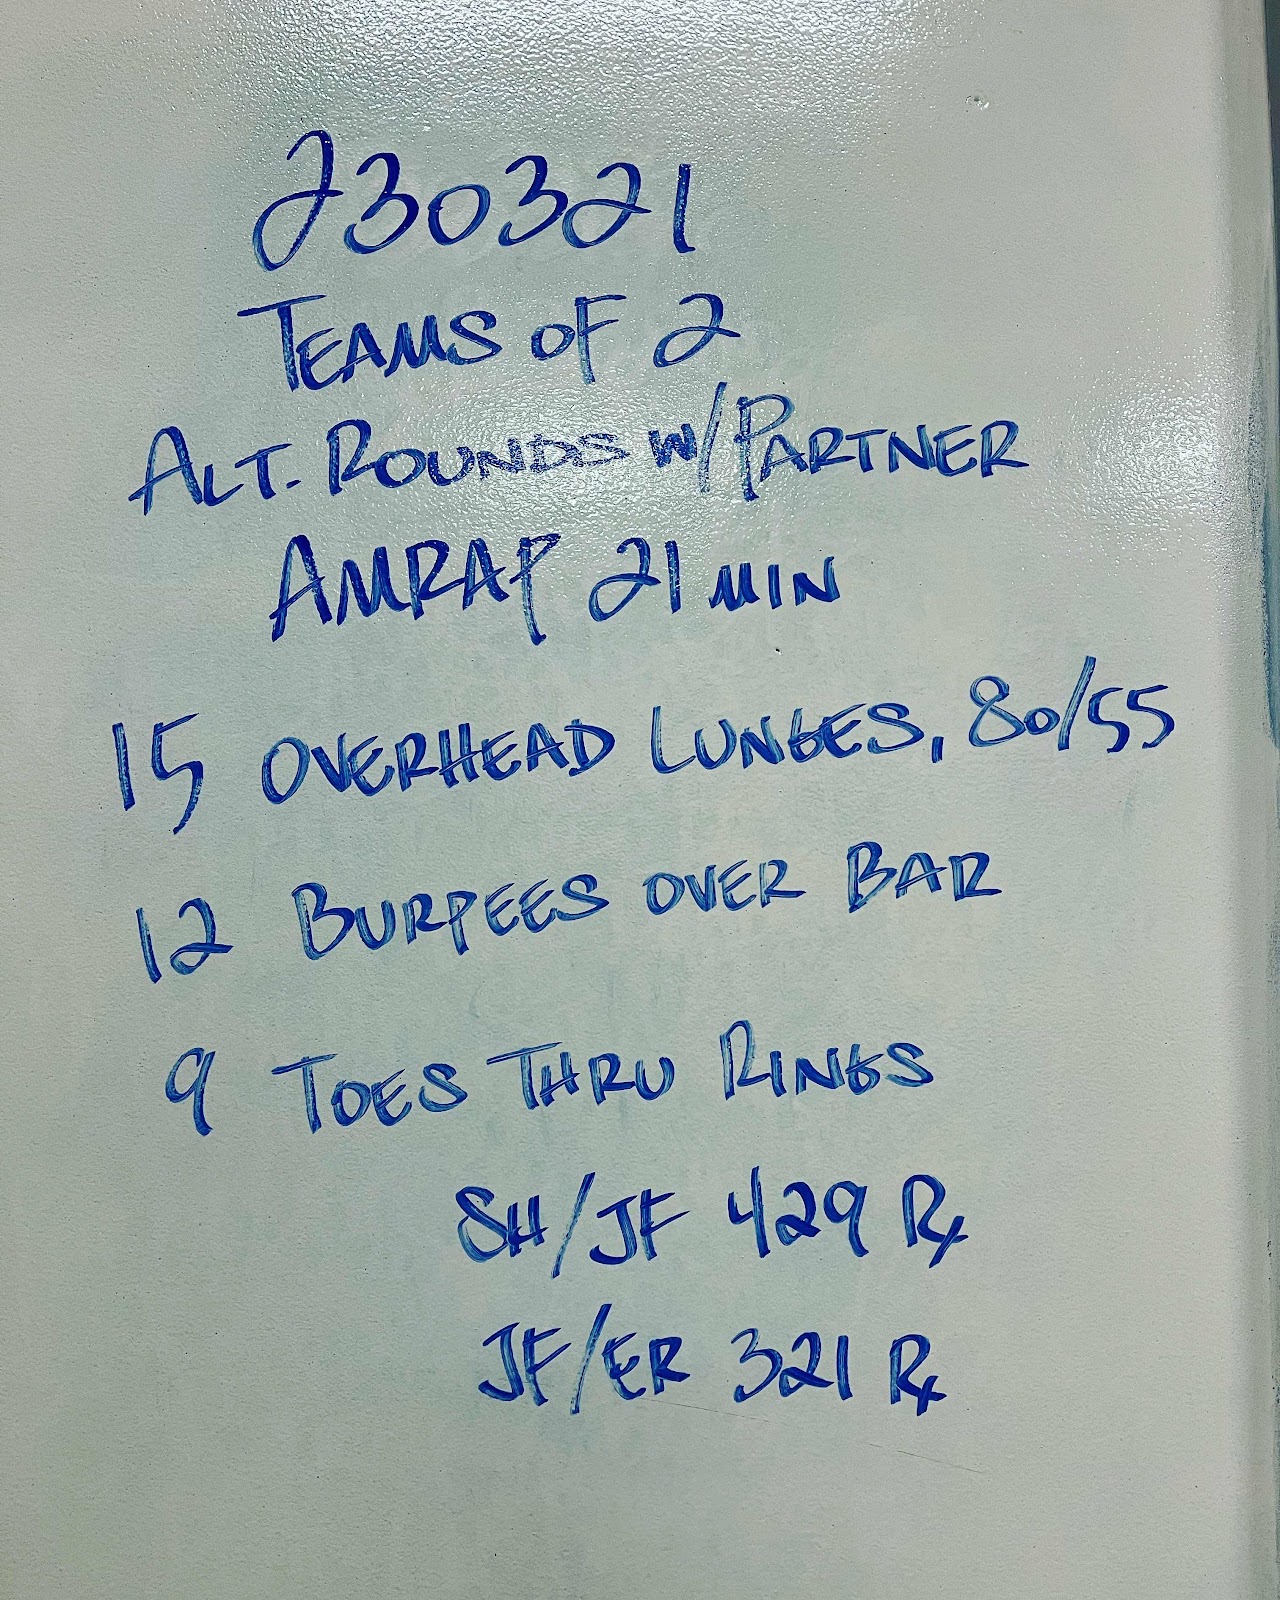 230321
TEAMS OF 2
ALT. ROUNDS W/PARTNER
AMRAP 21 MIN
15 OVERHEAD LUNGES, 80/55
12 BURPEES OVER BAR
9 TOES THRU RINGS
SH/JF 429 Rx
JF/ER 321 Rx